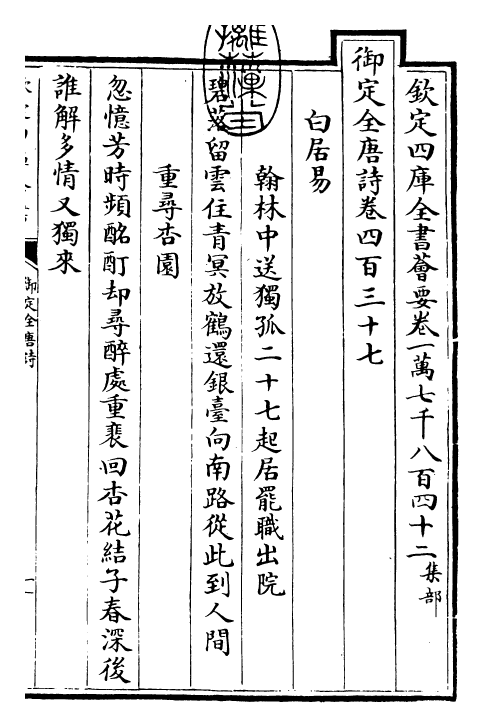 欽定四庫全書薈要卷一萬七千八百四十二集部
御定全唐詩卷四百三十七
白居易
翰林中送獨孤二十七起居罷職出院
碧落留雲住青冥放鶴還銀臺向南路從此到人間
重尋杏園
忽憶芳時頻酩酊却尋醉處重裴回杏花結子春深後
誰解多情又獨來
御定全唐詩